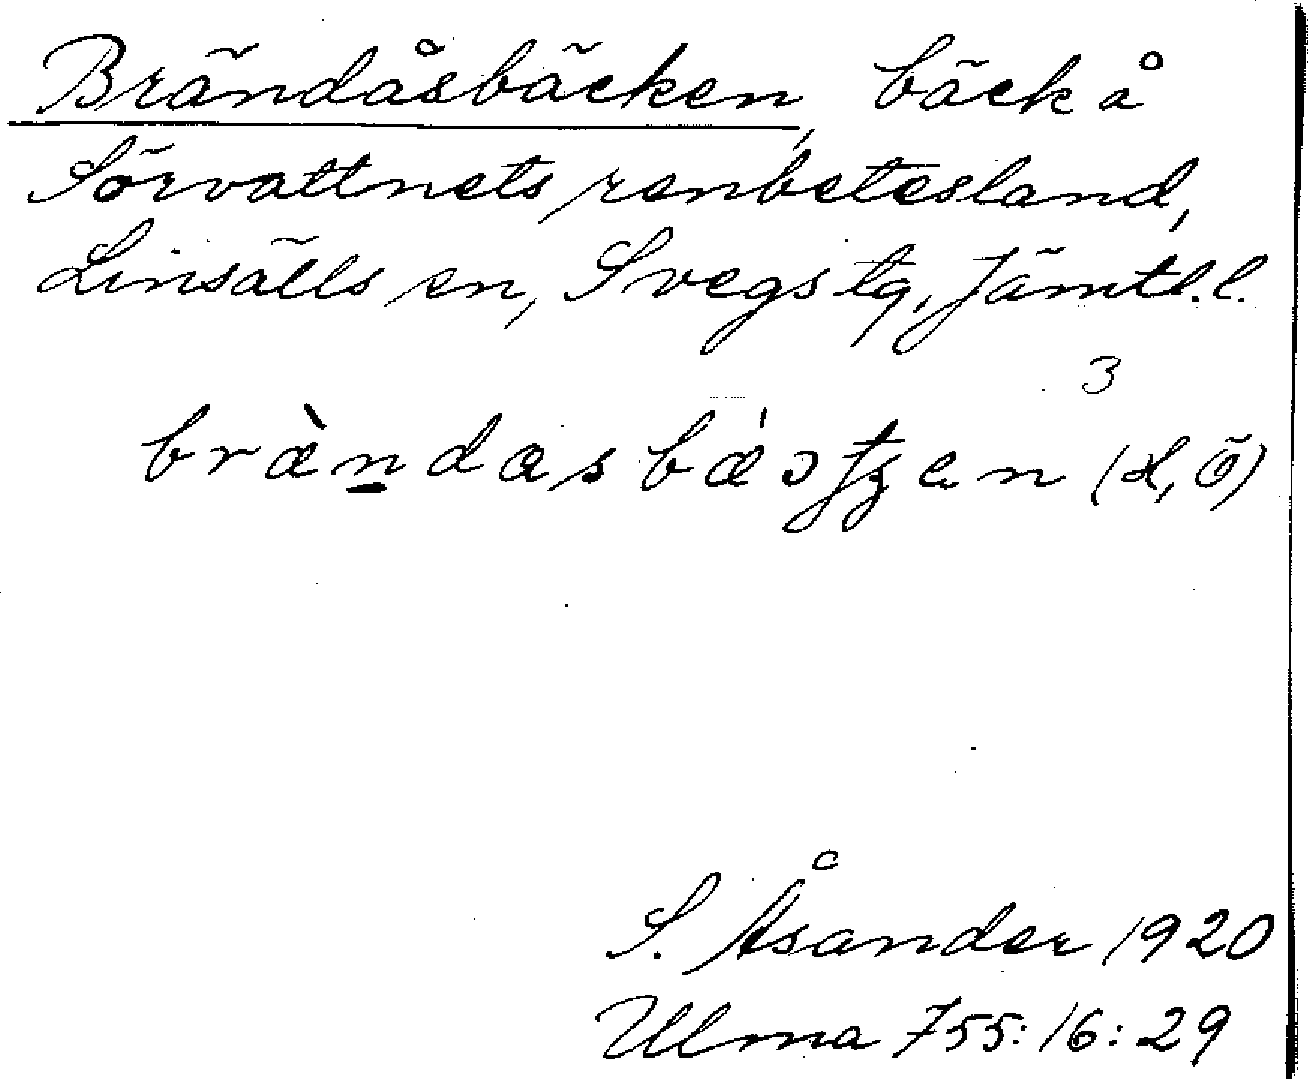 Brändåsbäcken, bäck å
Sörvattnets renbetesland,
Linsälls sn, Svegs tg, Jämtl. l.
3
S. Åsander 1920
Ulma 755:16:29